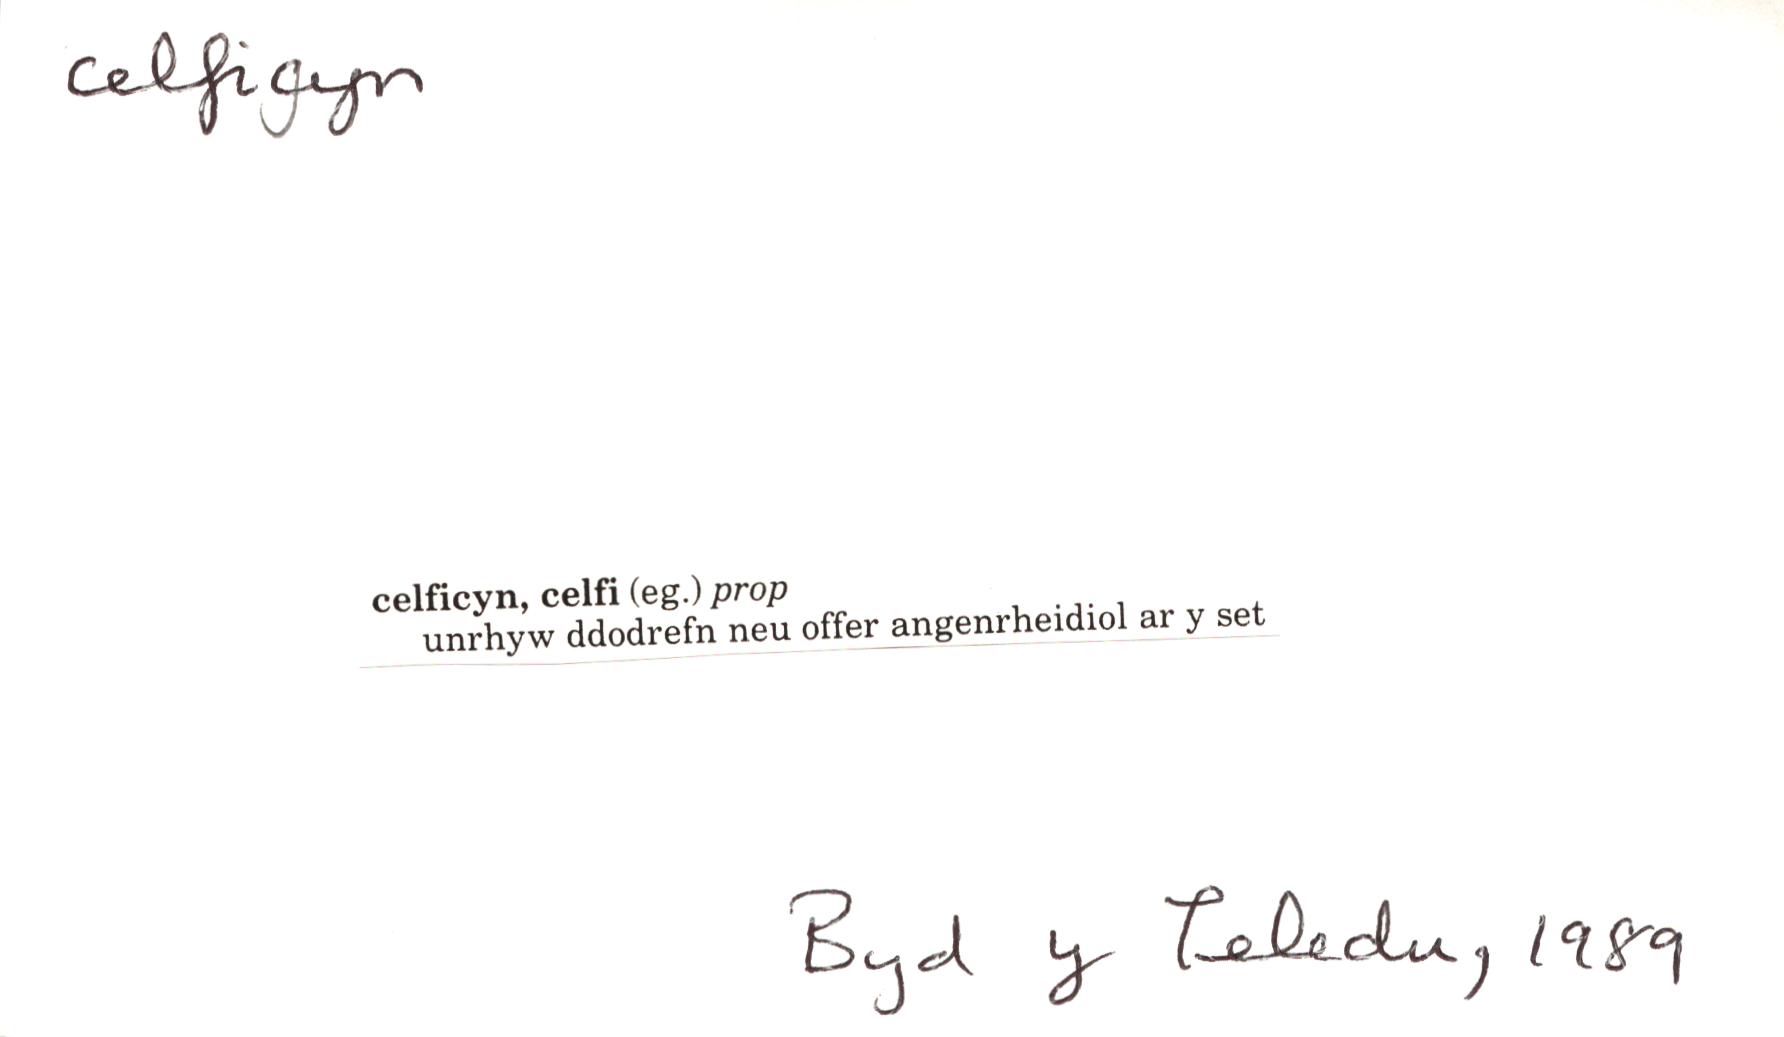 celfigyn
celficyn, celfi (eg.) prop
unrhyw ddodrefn neu offer angenrheidiol ar y set
Byd y Teledu, 1989